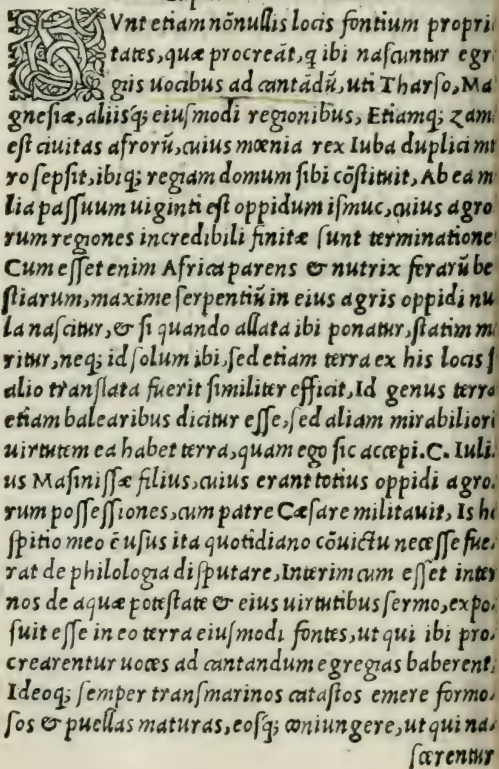 SVnt etiam nõnullis locis fontium propri
tates, quæ procreãt, q ibi nascuntur egr
giis uocibus ad cantãdũ, uti Tharso, Ma
gnesiæ, aliisq; eiusmodi regionibus, Etiamq; zam
est ciuitas afrorũ, cuius mœnia rex Iuba duplici mu
ro sepsit, ibiq; regiam domum sibi cõstituit, Ab ea m
lia passuum uiginti est oppidum ismuc, cuius agro
rum regiones incredibili finitæ sunt terminatione
Cum esset enim Africa parens & nutrix ferarũ be
stiarum, maxime serpentiũ in eius agris oppidi nu
la nascitur, & si quando allata ibi ponatur, statim m
ritur, neq; id solum ibi, sed etiam terra ex his locis s
alio translata fuerit similiter efficit, Id genus terræ
etiam balearibus dicitur esse, sed aliam mirabiliori
uirtutem ea habet terra, quam ego sic accœpi. C. Iuli
us Masinissæ filius, cuius erant totius oppidi agro
rum possessiones, cum patre Cæsare militauit, Is ho
spitio meo ẽ usus ita quotidiano cõuictu necesse fue
rat de philologia disputare, Interim cum esset inter
nos de aquæ potestate & eius uirtutibus sermo, expo
suit esse in eo terra eiusmodi fontes, ut qui ibi pro
crearentur uoces ad cantandum egregias baberent,
Ideoq; semper transmarinos catastos emere formo
sos & puellas maturas, eosq; coniungere, ut qui na
scerentur